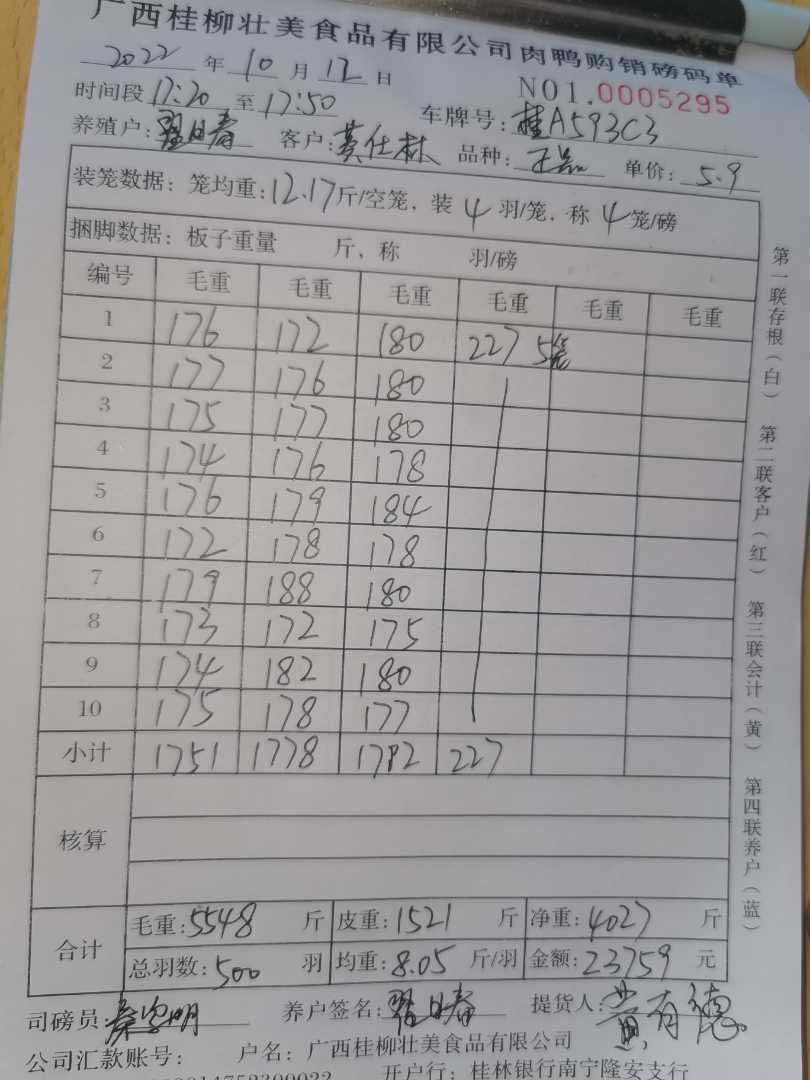 广西桂柳壮美食品有限公司肉鸭购销磅码单
2022 年 10 月 12 日 NO1.0005295
时间段 17:20 至 17:50 车牌号: 桂A593C3
养殖户: 客户: 黄仕林 品种: 单价: 5.9
装笼数据: 笼均重: 12.17 斤/空笼, 装 4 羽/笼, 称 4 笼/磅
捆脚数据: 板子重量 斤、称 羽/磅
编号 毛重 毛重 毛重 毛重 毛重 毛重
1 176 172 180 227 5笼
2 177 176 180
3 175 177 180
4 174 176 178
5 176 179 184
6 172 178 178
7 179 188 180
8 173 172 175
9 174 182 180
10 175 178 177
小计 1751 1778 1792 227
核算
合计 毛重: 5548 斤 皮重: 1521 斤 净重: 4027 斤
总羽数: 500 羽 均重: 8.05 斤/羽 金额: 23759 元
司磅员: 养户签名: 提货人: 黄有德
公司汇款账号: 户名: 广西桂柳壮美食品有限公司
开户行: 桂林银行南宁隆安支行
第一联存根(白) 第二联客户(红) 第三联会计(黄) 第四联养户(蓝)